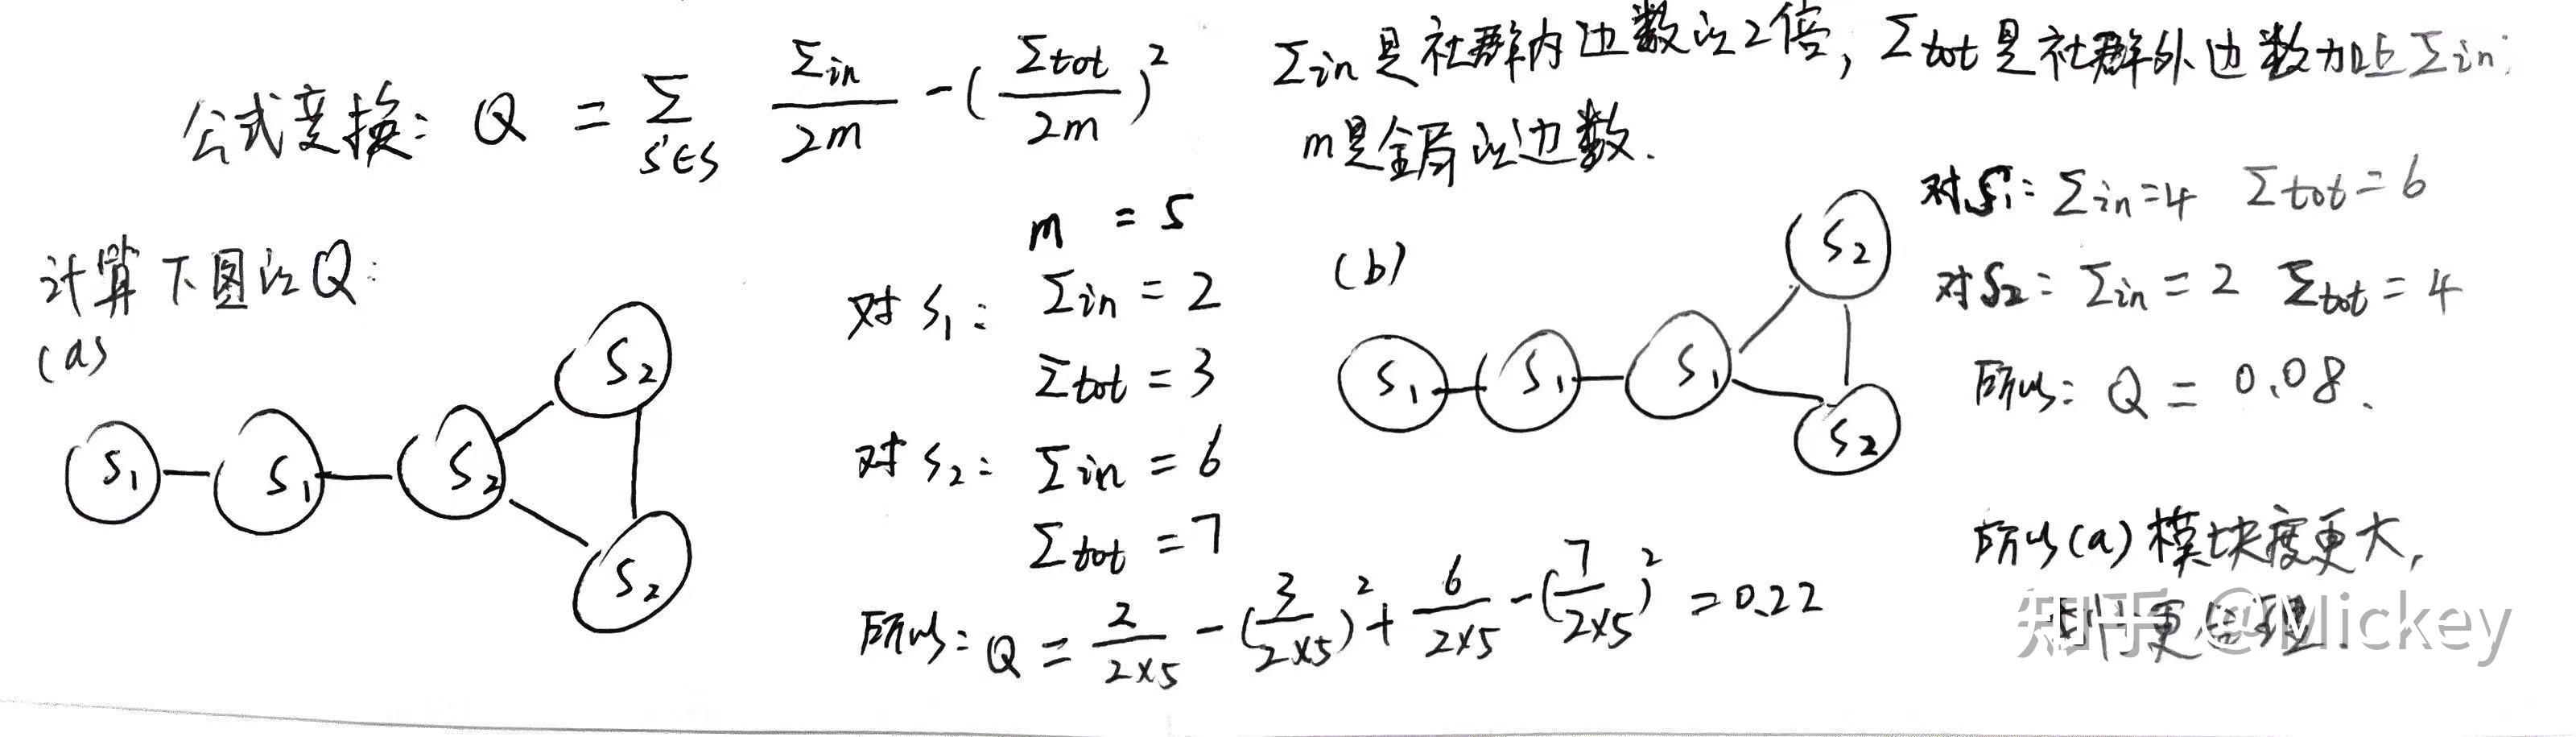 公式变换: Q = Σ_{S'∈S} Σin/2m - (Σtot/2m)²
Σin是社群内边数的2倍, Σtot是社群外边数加上Σin,
m是全局的边数.
计算下图的Q:
(a)
S1 S1 S2 S2 S2
m = 5
对S1: Σin = 2
Σtot = 3
对S2: Σin = 6
Σtot = 7
所以: Q = 2/2×5 - (3/2×5)² + 6/2×5 - (7/2×5)² = 0.22
(b)
S1 S1 S1 S2 S2
对S1: Σin=4 Σtot=6
对S2: Σin=2 Σtot=4
所以: Q = 0.08.
所以(a)模块度更大,
更合理.
知乎 @Mickey